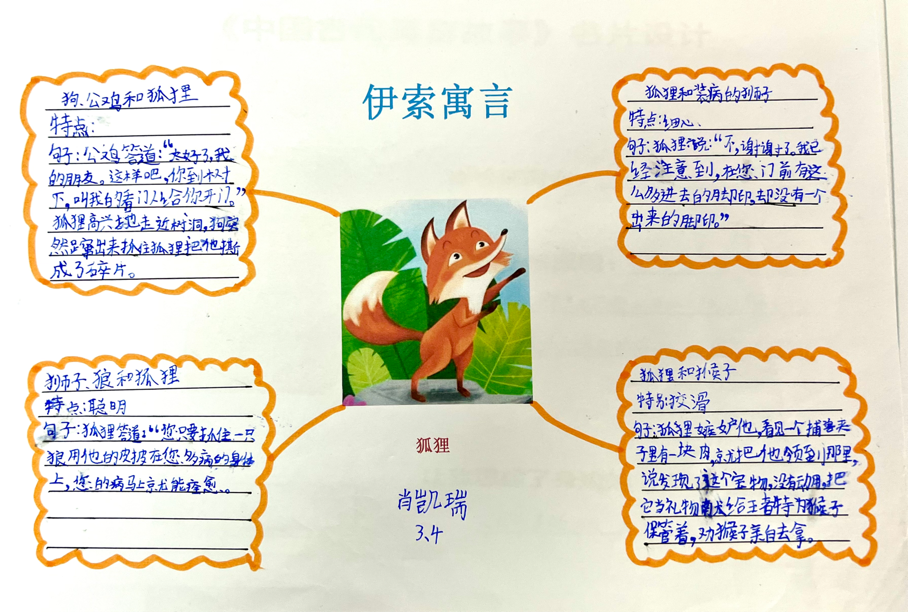 伊索寓言
狗、公鸡和狐狸
特点:
句子:公鸡答道:“太好了,我
的朋友。这样吧,你到树
下,叫我的看门人给你开门。”
狐狸高兴地走近树洞,狗突
然蹿出来抓住狐狸把他撕
成了碎片。
狐狸和装病的狮子
特点:细心、
句子:狐狸说:“不,谢谢了。我已
经注意到,在您门前有这
么多进去的脚印,却没有一个
出来的脚印。”
狮子、狼和狐狸
特点:聪明
句子:狐狸答道:“您只要抓住一只
狼用他的皮披在您多病的身体
上,您的病马上就能痊愈。
狐狸和猴子
特点:狡滑
句子:狐狸嫉妒他,看见一个捕兽夹
子里有一块肉,就把他领到那里,
说发现了这个宝物,没有动用,把
它当礼物献给王者特为猴子
保管着,劝猴子亲自去拿。
狐狸
肖凯瑞
3、4